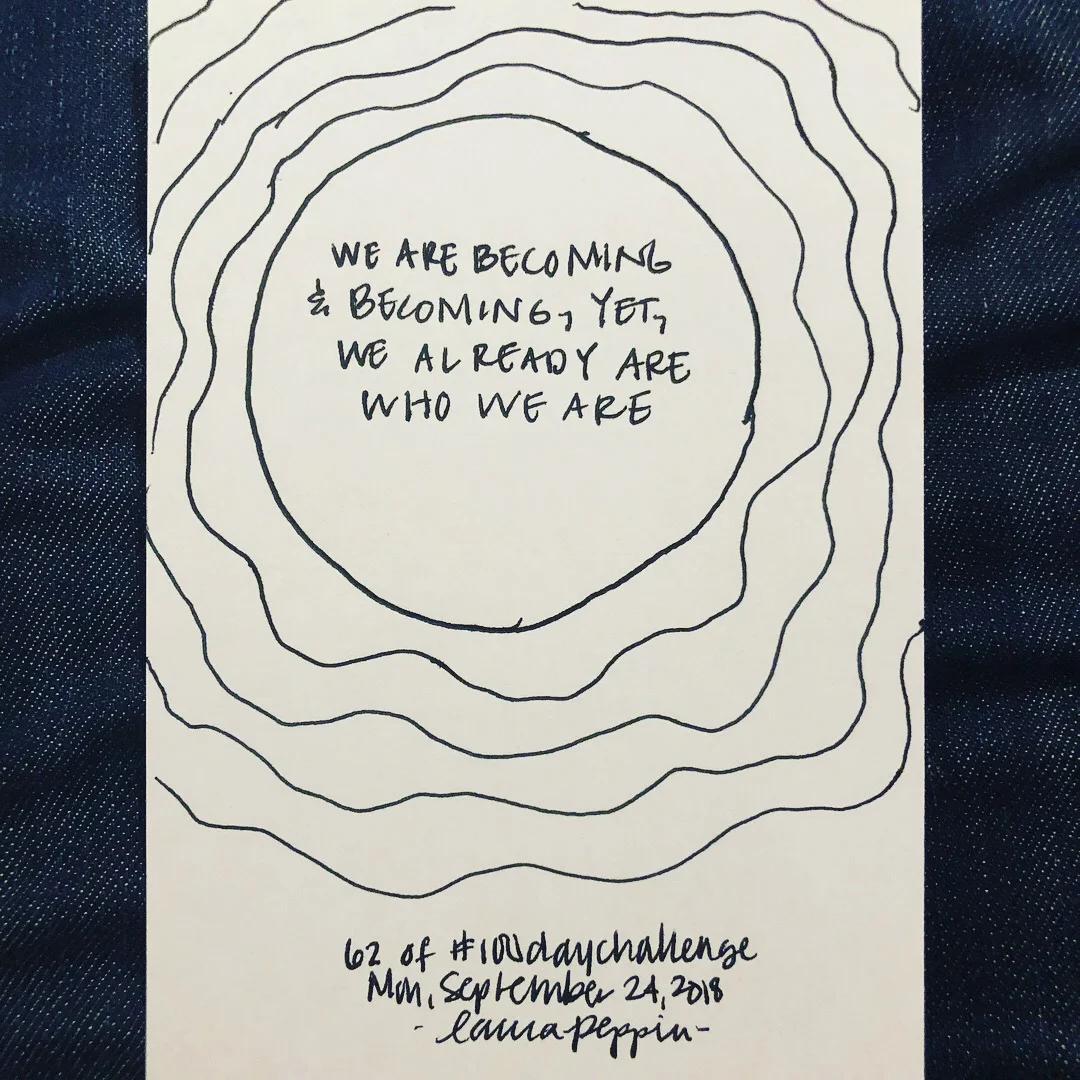 WE ARE BECOMING
& BECOMING, YET,
WE ALREADY ARE
WHO WE ARE
62 of #100daychallenge
Mon, September 24, 2018
- laura peppin -